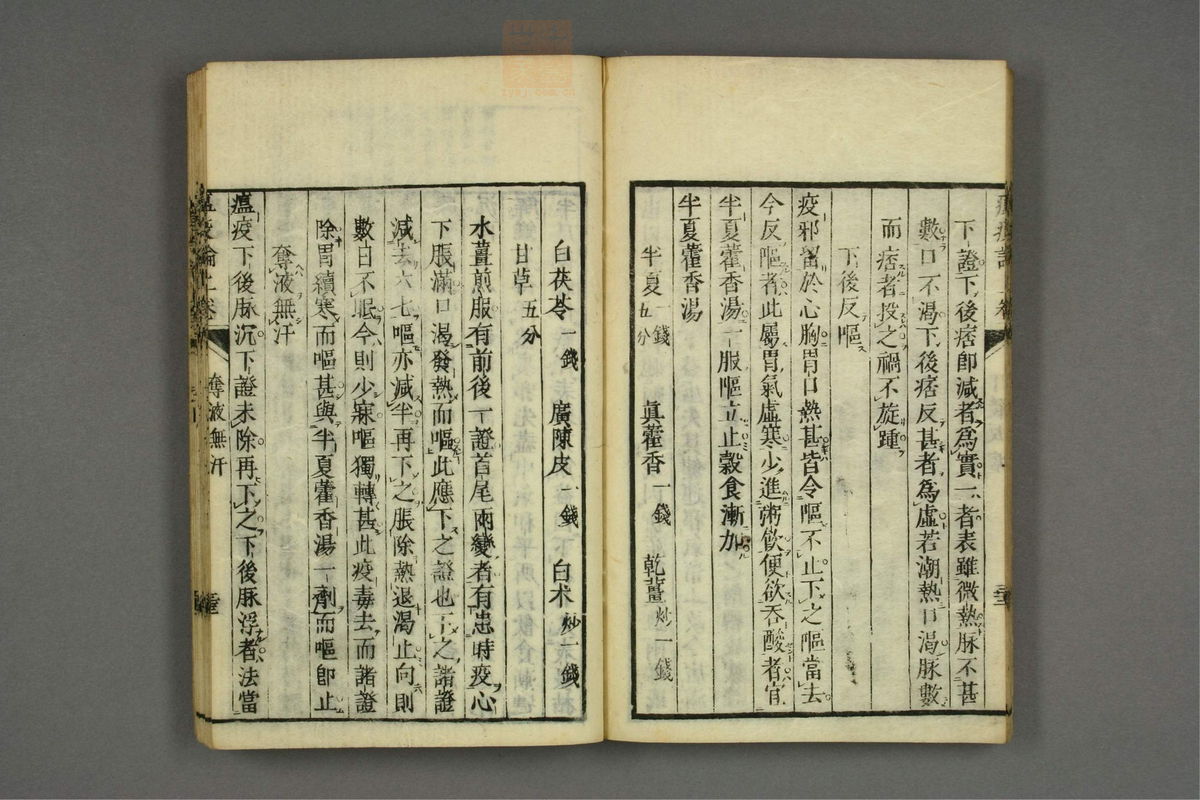 下證下後痞即減者爲實一者表雖微熱脉不甚
數口不渴下後痞反甚者爲虛若潮熱口渴脉數
而痞者投之禍不旋踵
下後反嘔
疫邪留於心胸胃口熱甚皆令嘔不止下之嘔當去
今反嘔者此屬胃氣虛寒少進粥飲便欲吞酸者宜
半夏藿香湯一服嘔立止穀食漸加
半夏藿香湯
半夏一錢五分 眞藿香一錢 乾薑炒一錢
白茯苓一錢 廣陳皮一錢 白朮炒一錢
甘草五分
水薑煎服有前後一證首尾兩變者有患時疫心
下脹滿口渴發熱而嘔此應下之證也下之諸證
減去六七嘔亦減半再下之脹除熱退渴止向則
數日不眠今則少寐嘔獨轉甚此疫毒去而諸證
除胃續寒而嘔甚與半夏藿香湯一劑而嘔即止
奪液無汗
瘟疫下後脉沉下證未除再下之下後脉浮者法當
瘟疫論上卷 奪液無汗